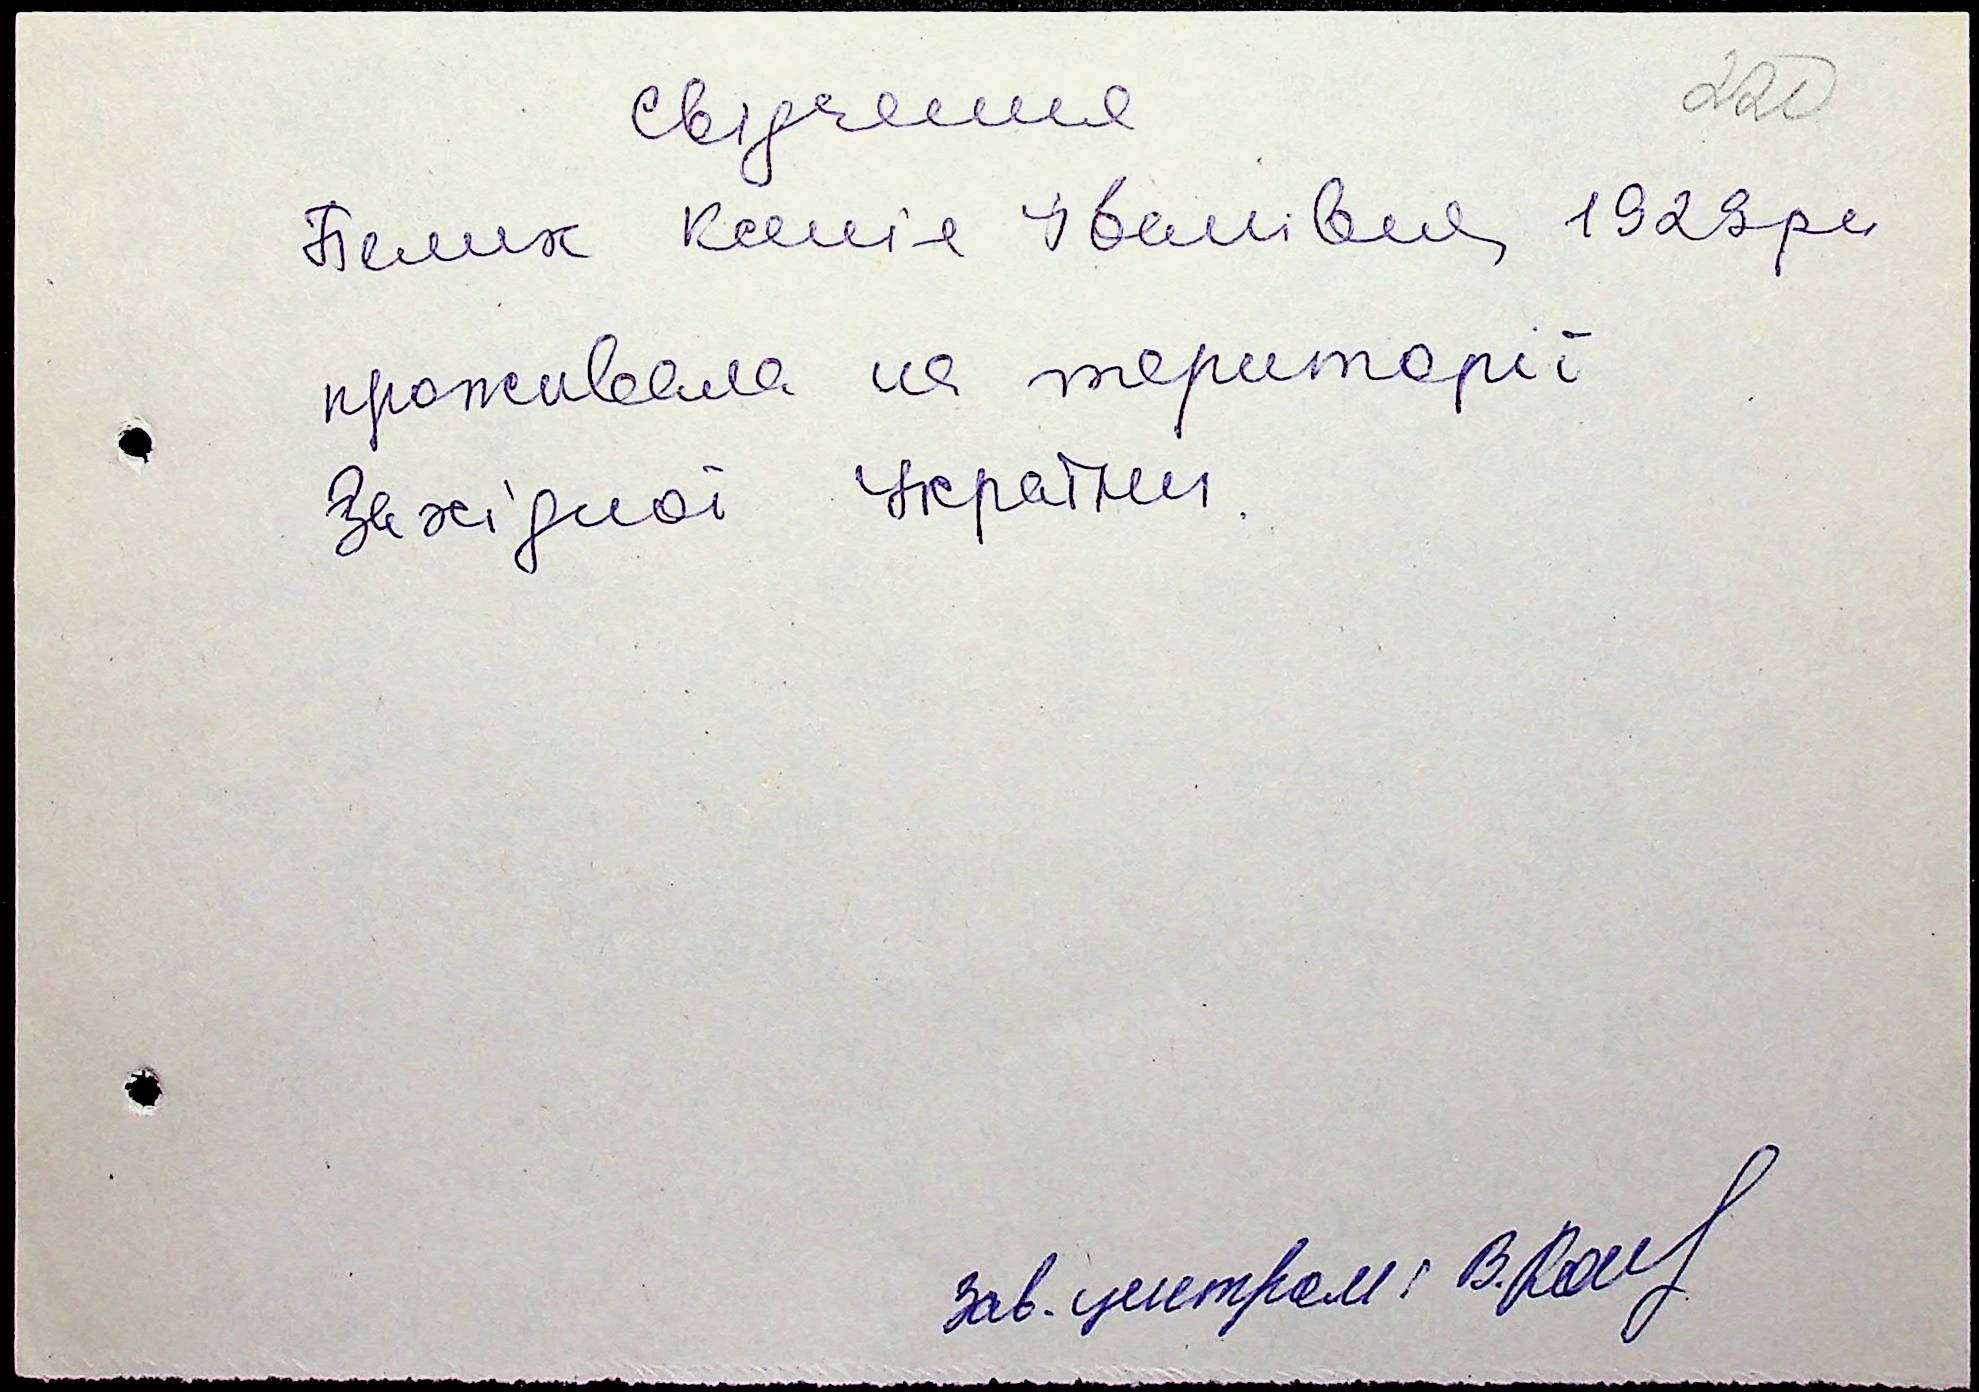 220
Свідчення
Белих Ксенія Іванівна, 1929рн
проживала на території
Західної України.
Зав. центром: В.